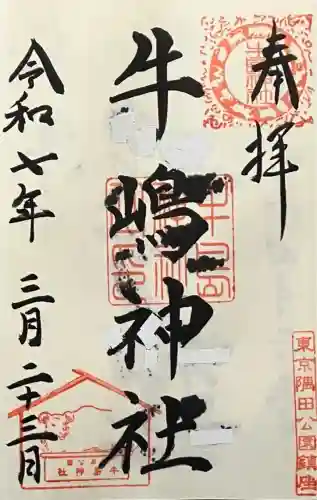 奉拝
牛嶋神社
令和七年 三月二十三日
東京隅田公園鎮座
牛嶋神社